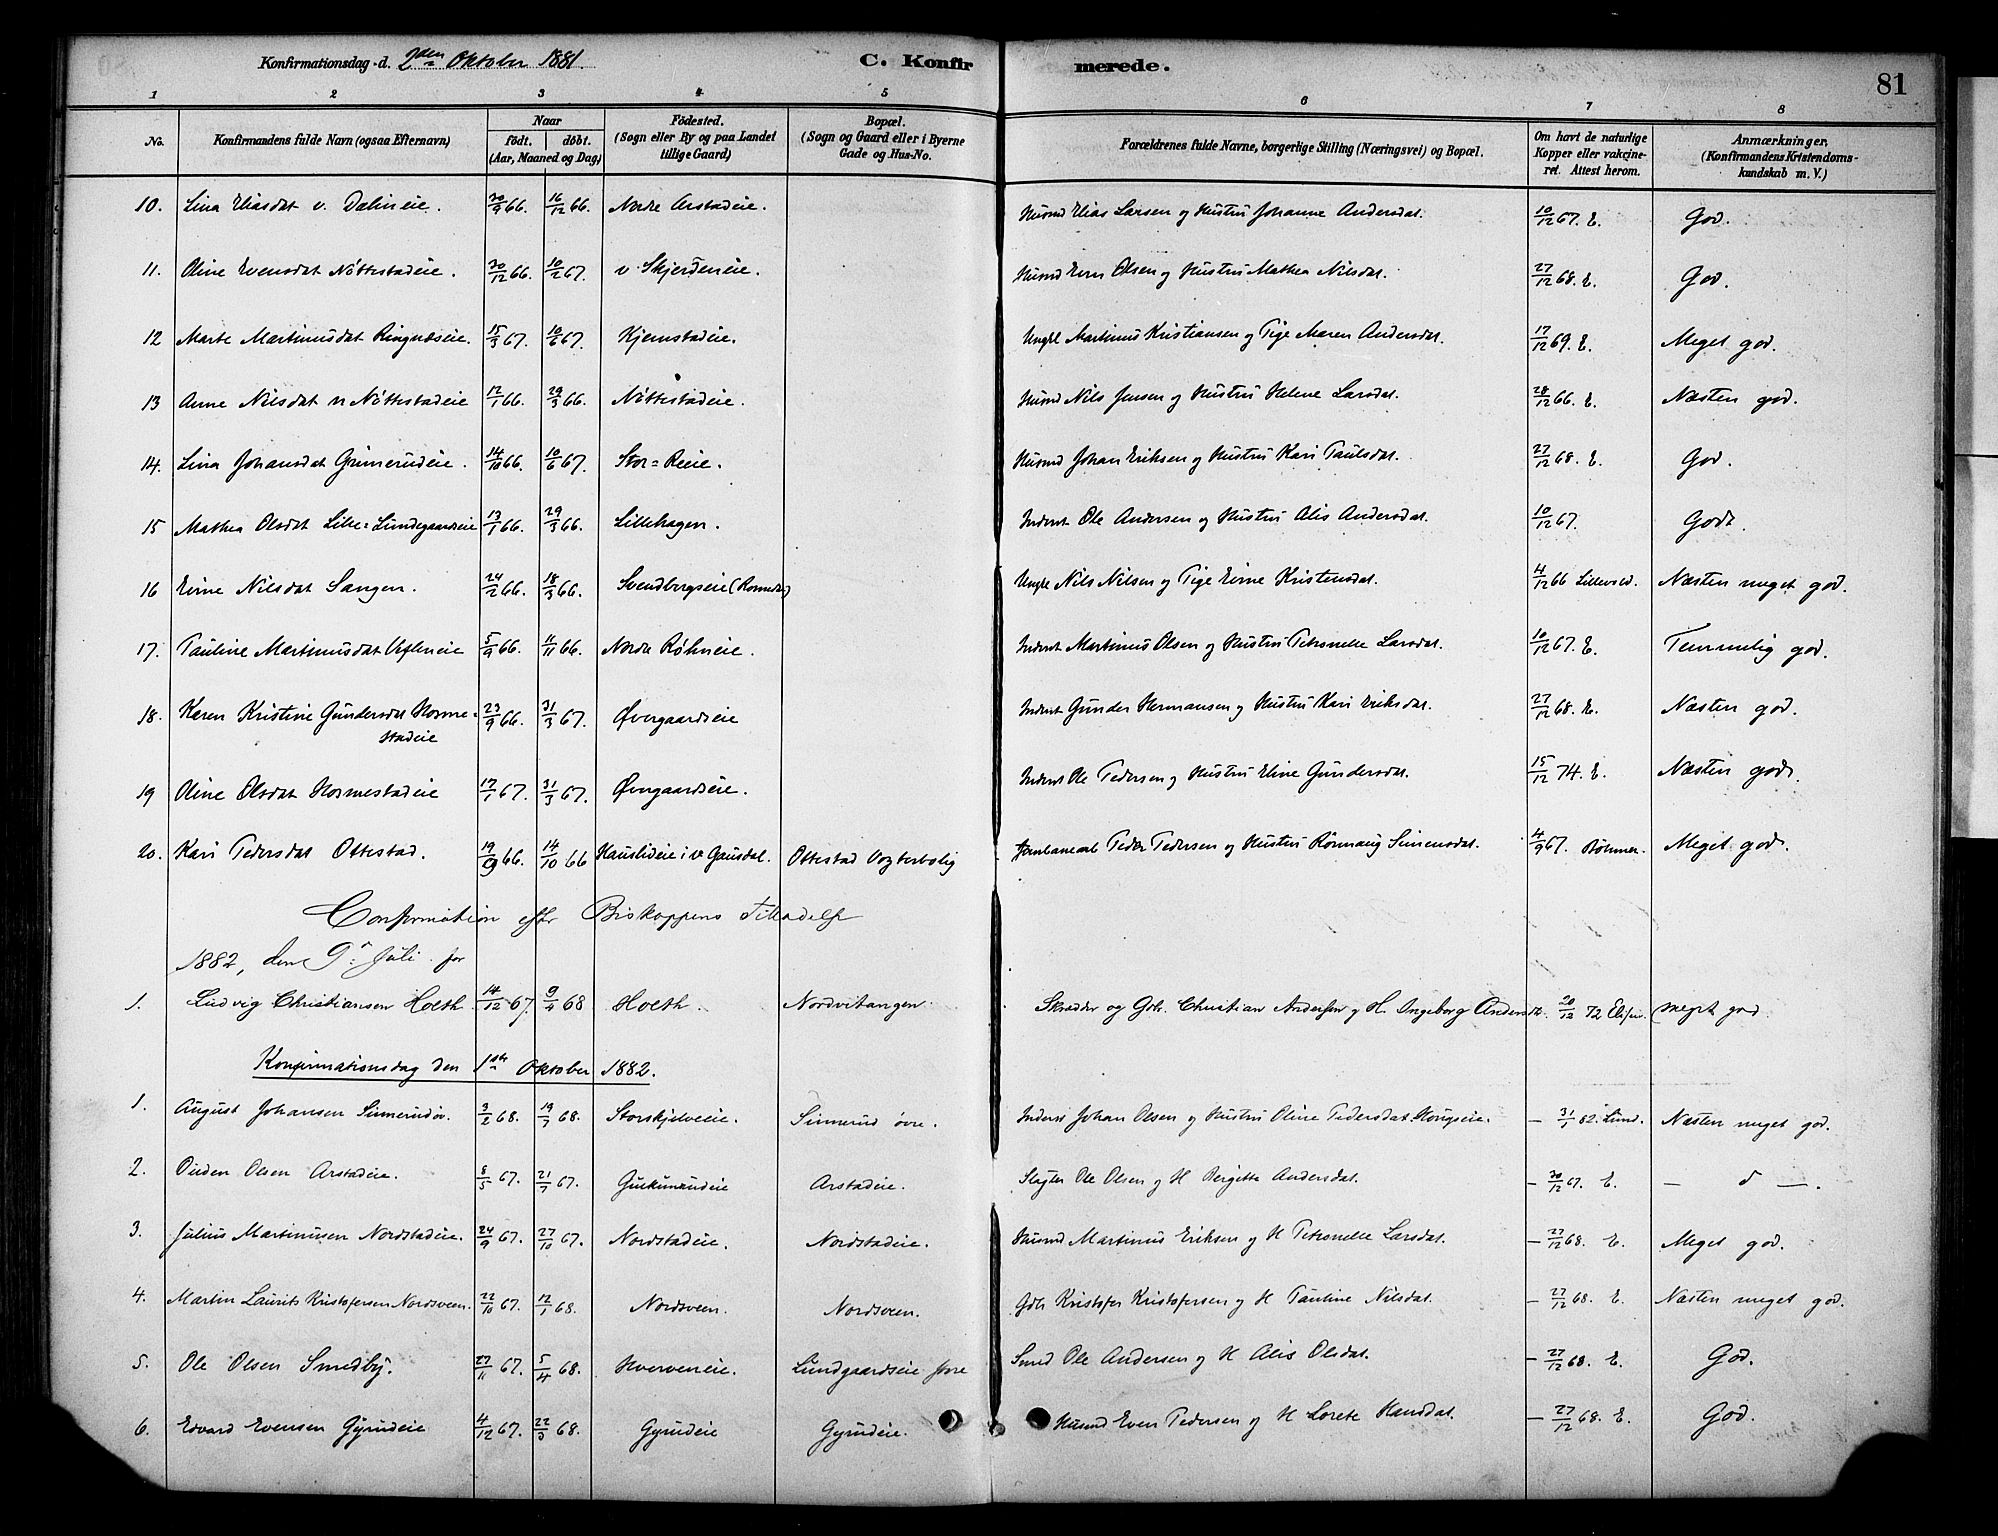 Konfirmationsdag d. 2den Oktober 1881.
C. Konfirmerede.
81
1 2 3 4 5 6 7 8
No. Konfirmandens fulde Navn (ogsaa Efternavn) Naar født. døbt. (Aar, Maaned og Dag) Fødested. (Sogn eller By og paa Landet tillige Gaard) Bopæl. (Sogn og Gaard eller i Byerne Gade og Hus-No. Forældrenes fulde Navne, borgerlige Stilling (Næringsvei) og Bopæl. Om havt de naturlige Kopper eller vakcineret. Attest herom. Anmærkninger. (Konfirmandens Kristendomskundskab m. V.)
10. Lina Eliasdat v. Dælineie. 30/9 66. 16/12 66. Nordre Arstadeie. Husmd Elias Larsen og Hustru Johanne Andersdat. 10/12 67. E. God.
11. Oline Evensdat Nöttestadeie. 30/12 66. 10/2 67. v. Skjerdeneie. Husmd Even Olsen og Hustru Mathea Nilsdat. 27/12 68. E. God.
12 Marte Martinusdat Ringnæseie. 15/3 67. 10/6 67. Kjemstadeie. Ungkl Martinus Kristiansen og Pige Maren Andersdat. 17/12 69. E. Meget god.
13 Anne Nilsdat n Nöttestadeie 12/1 66. 29/3 66. Nöttestadeie. Husmd Nils Jensen og Hustru Helene Larsdat. 28/12 66. E. Næsten god.
14. Lina Johansdat Grimerudeie. 14/10 66. 10/6 67. Stor=Reeie. Husmd Johan Eriksen og Hustru Kari Paulsdat. 27/12 68. E. God.
15 Mathea Olsdat Lille=Lundgaardseie 13/1 66. 29/3 66. Lillehagen. Inderst Ole Andersen og Hustru Alis Andersdat. 10/12 67. Godt.
16 Eline Nilsdat Sangen. 24/2 66. 18/3 66. Svendbergseie (Romedal) Ungkl Nils Nilsen og Pige Eline Kristensdat. 4/12 66 Lillevold. Næsten meget god.
17. Pauline Martinusdat Uflineie 5/9 66. 11/11 66. Nordre Røhneie. Inderst Martinus Olsen og Hustru Petronelle Larsdat. 10/12 67. E. Temmelig god.
18. Karen Kristine Gundersdat Hormestadeie 23/9 66. 31/3 67. Øvergaardseie Inderst Gunder Hermansen og Hustru Kari Eriksdat. 27/12 68. E. Næsten god.
19 Oline Olsdat Hormestadeie 17/1 67. 31/3 67. Øvergaardseie. Inderst Ole Pedersen og Hustru Eline Gundersdat. 15/12 74. E. Næsten god.
20. Kari Pedersdat Ottestad. 19/9 66. 14/10 66 Hauslideie i v Gausdal. Ottestad Vogterbolig Peder Pedersen og Hustru Rönnaug Simensdat. 4/9 67. Böhmer. Meget god.
Confirmation efter Biskoppens Tilladelse
1882, den 9de Juli for
1. Ludvig Christiansen Hoeth. 14/12 67. 9/4 68 Hoeth. Nordvitangen. Skrædder og Gbr. Christian Andersen og H. Ingeborg Andersdt. 20/12 72 meget god.
Konfirmationsdag den 1ste Oktober 1882.
1. August Johansen Sinnerudøv. 3/2 68. 19/3 68. Storskjelveeie. Sinnerud øvre. Inderst Johan Olsen og Hustru Oline Pedersdat. — 31/1 82. Lund. Næsten meget god.
2. Ouden Olsen Arstadeie. 8/5 67. 21/7 67. Arstadeie. Slagter Ole Olsen og H Bergitta Andersdat. — 30/12 67. E. — d —.
3. Julius Martinusen Nordstadeie. 24/9 67. 27/10 67. Nordstadeie. Nordstadeie. Husmd Martinus Eriksen og H Petronelle Larsdat. — 27/12 68. E. Meget god.
4. Martin Laurits Kristofersen Nordsveen. 22/10 67. 12/1 68. Nordsveen. Nordsveen. Gbr Kristofer Kristofersen og H Pauline Nilsdat. — 27/12 68. E. Næsten meget god.
5. Ole Olsen Smedby. 27/11 67. 5/4 68. Hverveneie. Lundgaardseie store Smed Ole Andersen og H Alis Olsdat. — 27/12 68. E. God.
6. Edvard Evensen Gyrudeie 4/12 67. 22/3 68. Gyrudeie Gyrudeie. Husmd Even Pedersen og H Lorete Hansdat. — 27/12 68. E. God.